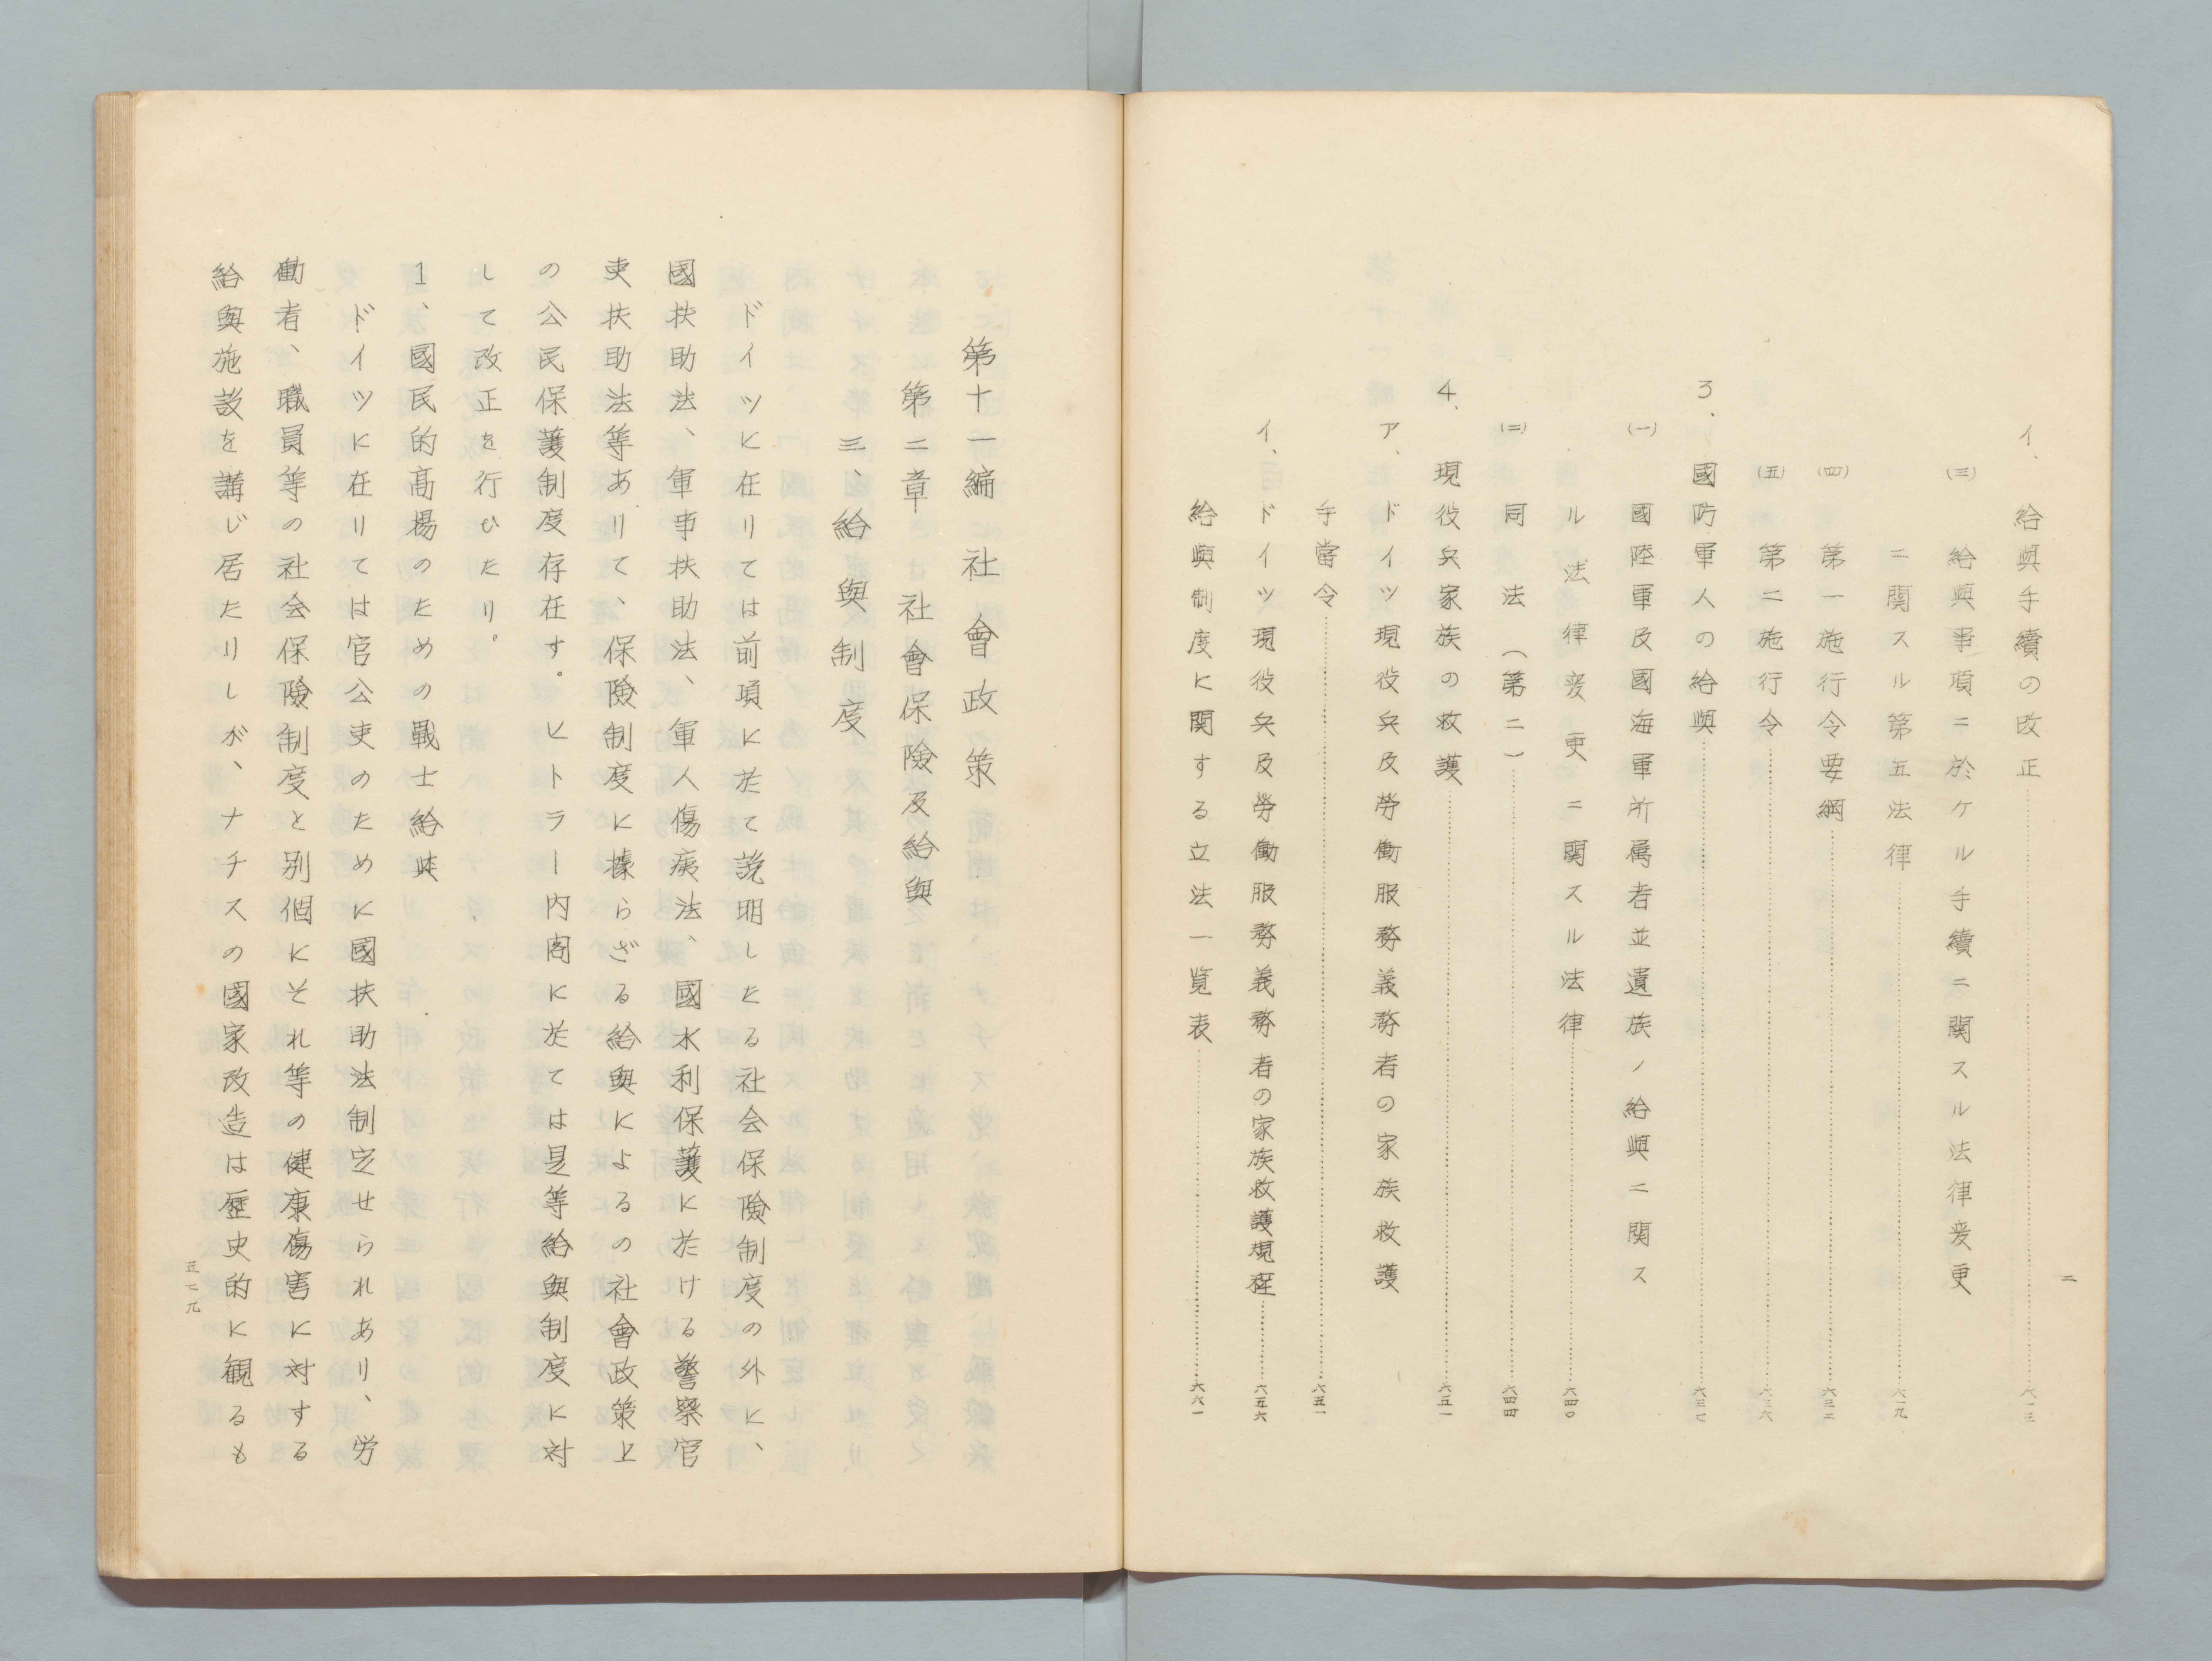 二
イ、給與手續の改正……六一三
(三)給與事項ニ於ケル手續ニ関スル法律変更
ニ関スル第五法律……六一九
(四)第一施行令要綱……六三二
(五)第二施行令……六三六
3、國防軍人の給與……六三七
(一)國陸軍及國海軍所属者並遺族ノ給與ニ関ス
ル法律変更ニ関スル法律……六四〇
(二)同法(第二)……六四四
4、現役兵家族の救護……六五一
ア、ドイツ現役兵及勞働服務義務者の家族救護
手當令……六五一
イ、ドイツ現役兵及勞働服務義務者の家族救護規程……六五六
給與制度に関する立法一覧表……六六一
第十一編 社會政策
第二章 社會保險及給與
三、給與制度
ドイツに在りては前項に於て説明したる社会保險制度の外に、
國扶助法、軍事扶助法、軍人傷痍法、國水利保護に於ける警察官
吏扶助法等ありて、保險制度に據らざる給與によるの社會政策上
の公民保護制度存在す。ヒトラー内閣に於ては是等給與制度に対
して改正を行ひたり。
1、國民的高揚のための戰士給与
ドイツに在りては官公吏のために國扶助法制定せられあり、労
働者、職員等の社会保險制度と別個にそれ等の健康傷害に対する
給與施設を講じ居たりしが、ナチスの國家改造は歴史的に観るも
五七九